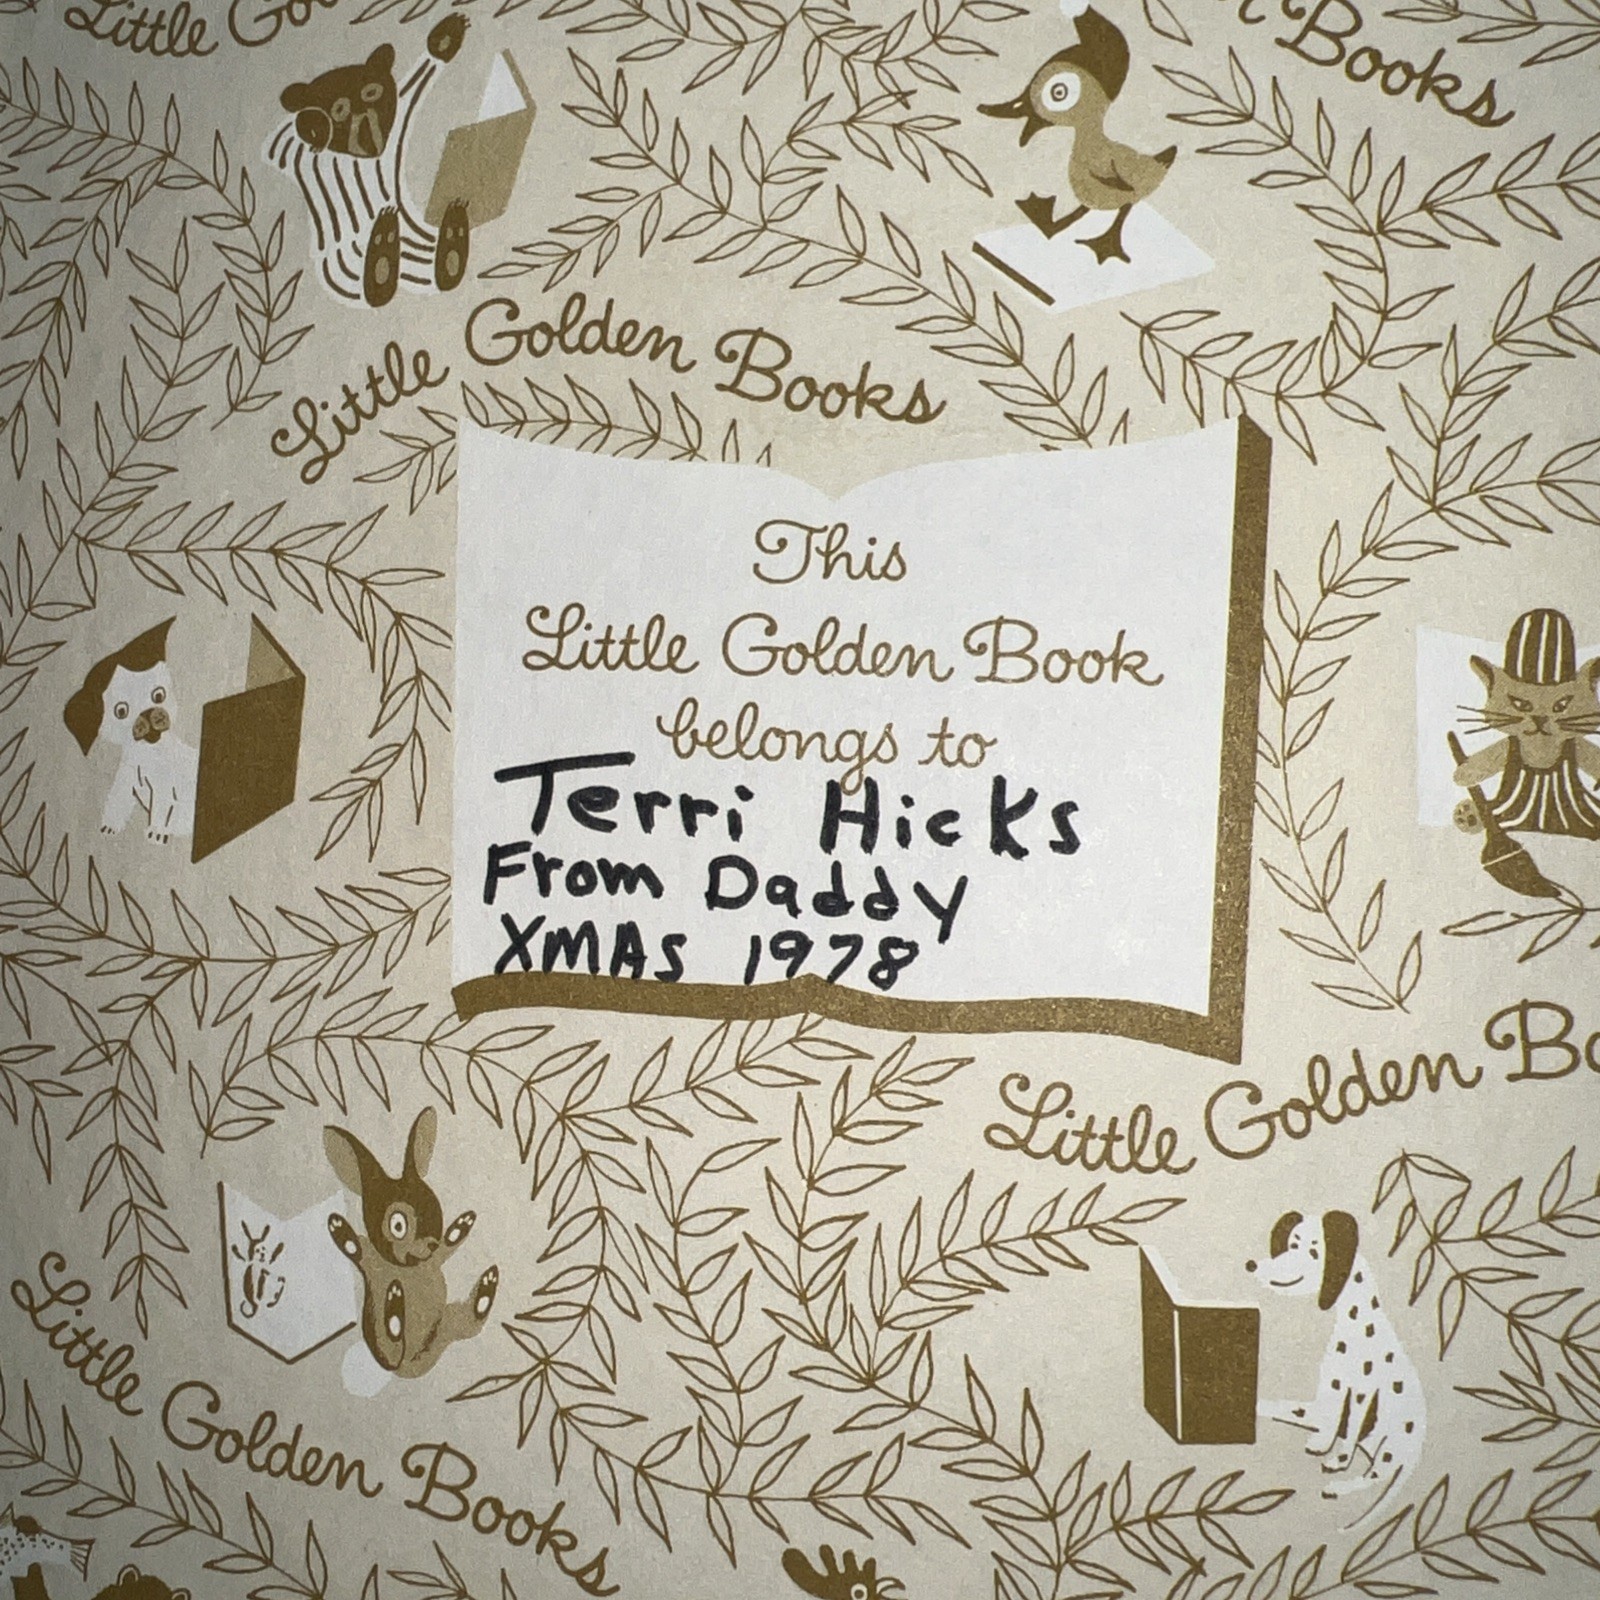 Little Go
Books
Little Golden Books
This
Little Golden Book
belongs to
Terri Hicks
From Daddy
XMAS 1978
Little Golden Bo
Little Golden Books